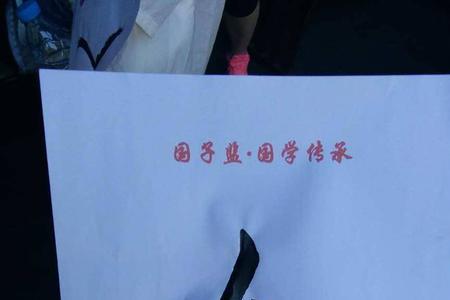 国子监·国学传承